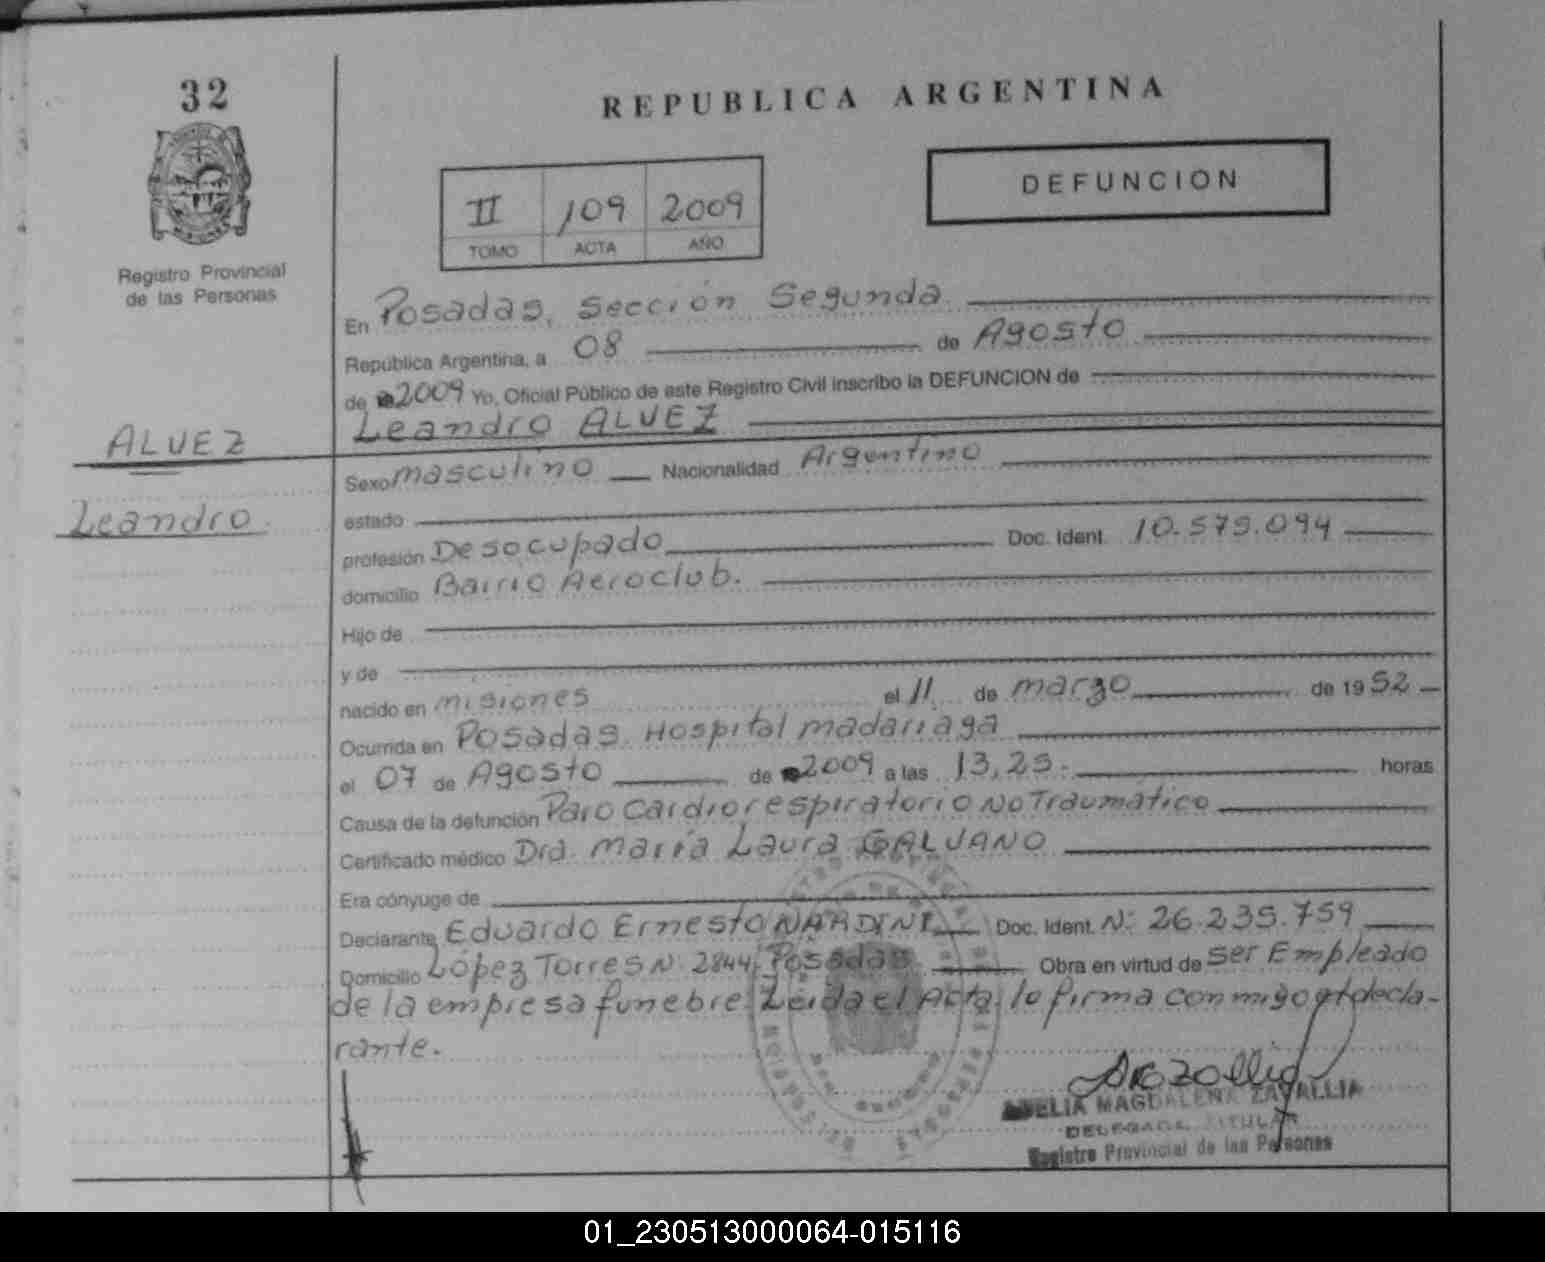 32
REPUBLICA ARGENTINA
DEFUNCION
II 109 2009
TOMO ACTA AÑO
Registro Provincial
de las Personas
En Posadas, Sección Segunda
República Argentina, a 08 de Agosto
de 2009 Yo, Oficial Público de este Registro Civil inscribo la DEFUNCION de
Leandro ALVEZ
ALVEZ
Leandro.
Sexo masculino Nacionalidad Argentino
estado
profesión Desocupado Doc. Ident. 10.575.094
domicilio Barrio Aeroclub.
Hijo de
y de
nacido en misiones el 11 de marzo de 1952
Ocurrida en Posadas Hospital madariaga
el 07 de Agosto de 2009 a las 13,25.- horas
Causa de la defunción Paro Cardiorespiratorio No Traumático
Certificado médico Dra. María Laura GALVANO
Era cónyuge de
Declarante Eduardo Ernesto NARDINI Doc. Ident. N: 26.235.759
Domicilio López Torres N: 2844, Posadas Obra en virtud de ser Empleado
de la empresa funebre. Leída el Acta, lo firma conmigo el decla-
rante.
ADELIA MAGDALENA ZAVALLIA
DELEGADA TITULAR
Registro Provincial de las Personas
01_230513000064-015116